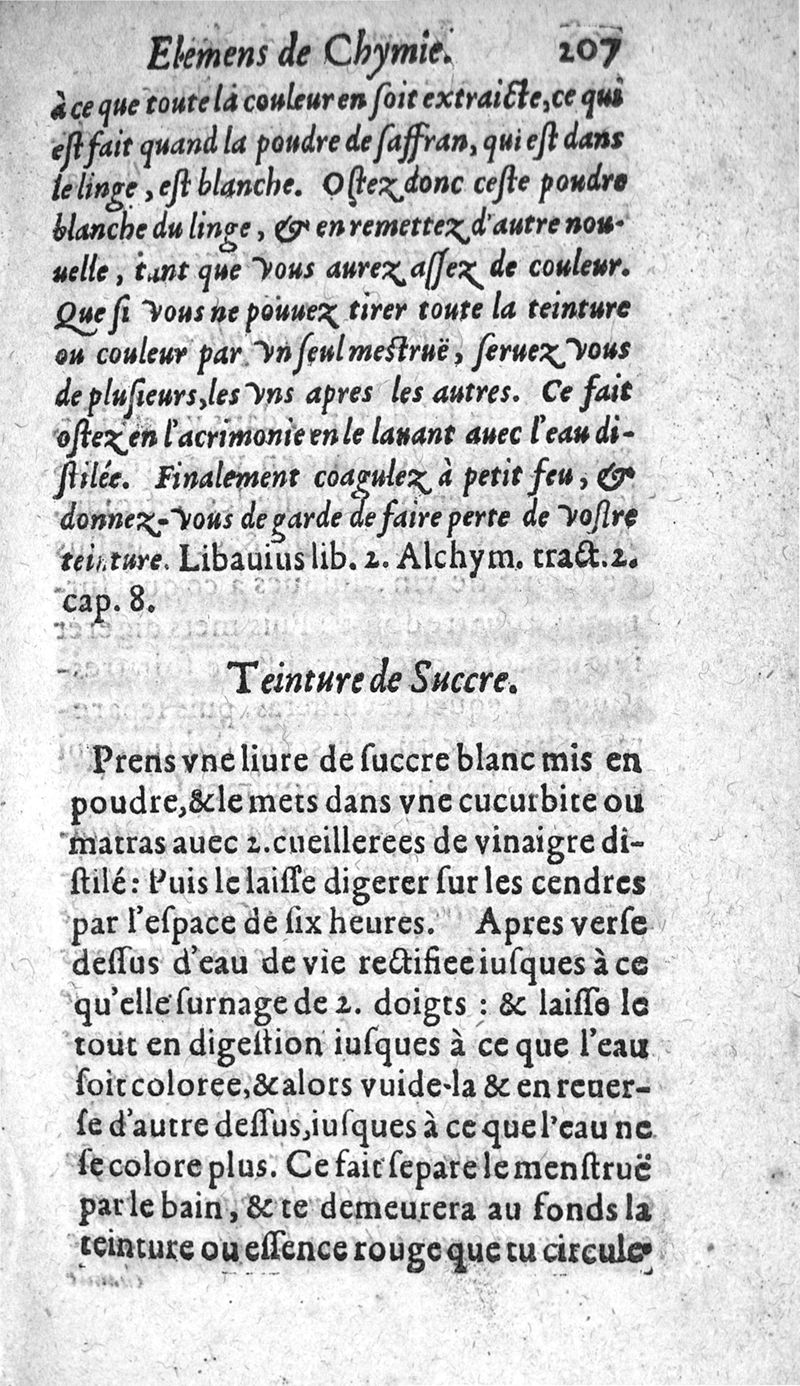 Elemens de Chymie. 207
à ce que toute la couleur en ſoit extraicte, ce qui
eſt fait quand la poudre de ſaffran, qui eſt dans
le linge, eſt blanche. Oſtez donc ceſte poudre
blanche du linge, & en remettez d'autre nou-
uelle, tant que vous aurez aſſez de couleur.
Que ſi vous ne pouuez tirer toute la teinture
ou couleur par vn ſeul meſtruë, ſeruez vous
de pluſieurs, les vns apres les autres. Ce fait
oſtez en l'acrimonie en le lauant auec l'eau di-
ſtilée. Finalement coagulez à petit feu, &
donnez-vous de garde de faire perte de voſtre
teinture. Libauius lib. 2. Alchym. tract. 2.
cap. 8.
Teinture de Succre.
Prens vne liure de ſuccre blanc mis en
poudre, & le mets dans vne cucurbite ou
matras auec 2. cueillerees de vinaigre di-
ſtilé: Puis le laiſſe digerer ſur les cendres
par l'eſpace de ſix heures. Apres verſe
deſſus d'eau de vie rectifiee iuſques à ce
qu'elle ſurnage de 2. doigts : & laiſſe le
tout en digeſtion iuſques à ce que l'eau
ſoit coloree, & alors vuide-la & en reuer-
ſe d'autre deſſus, iuſques à ce que l'eau ne
ſe colore plus. Ce fait ſepare le menſtruë
par le bain, & te demeurera au fonds la
teinture ou eſſence rouge que tu circule